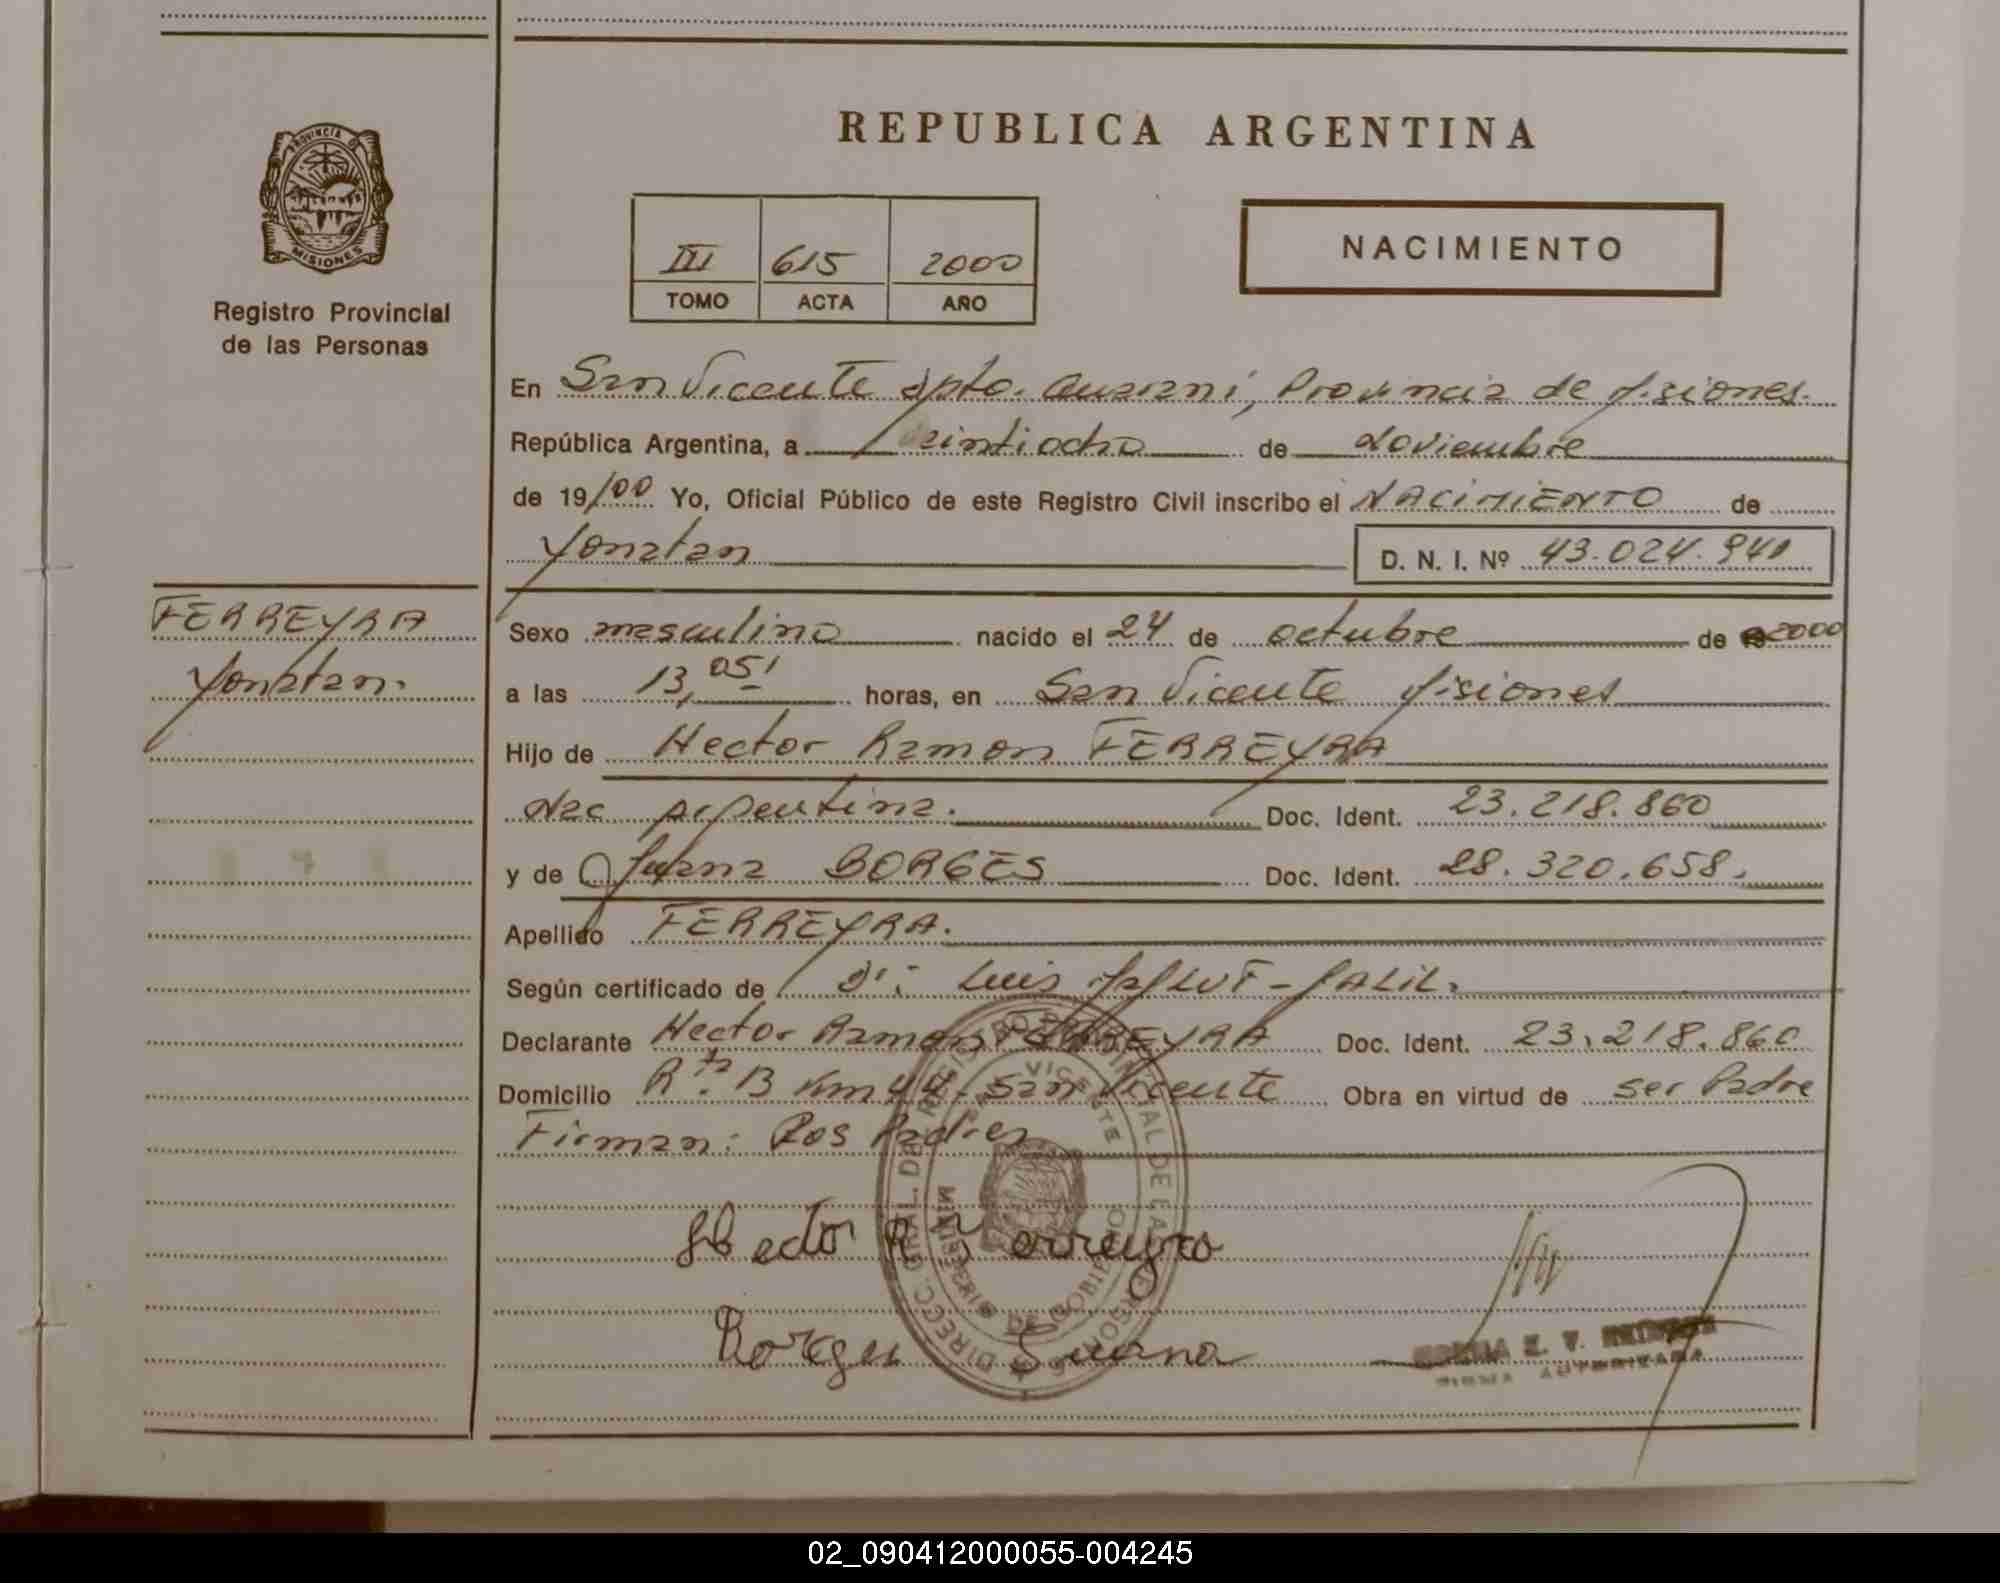 PROVINCIA DE
MISIONES
Registro Provincial
de las Personas
FERREYRA
Yonatan.
REPUBLICA ARGENTINA
III 615 2000
TOMO ACTA AÑO
NACIMIENTO
En San Vicente dpto. Guaraní, Provincia de Misiones.
República Argentina, a veintiocho de Noviembre
de 19/00 Yo, Oficial Público de este Registro Civil inscribo el NACIMIENTO de
Yonatan D. N. I. Nº 43.024.940
Sexo masculino nacido el 24 de octubre de 2000
a las 13,05' horas, en San Vicente Misiones
Hijo de Hector Ramon FERREYRA
Nac argentina. Doc. Ident. 23.218.860
y de Juana BORGES Doc. Ident. 28.320.658.
Apellido FERREYRA.
Según certificado de Luis JALIL.
Declarante Hector Ramon FERREYRA Doc. Ident. 23.218.860
Domicilio Rta. 13 Km 44. San Vicente Obra en virtud de ser Padre
Firman: Los Padres
Hector R Ferreyra
Borges Juana
DIRECC. GRAL. DEL REGISTRO PROVINCIAL DE LAS PERSONAS
SAN VICENTE
MINISTERIO DE GOBIERNO
E. V.
FIRMA AUTORIZADA
02_090412000055-004245